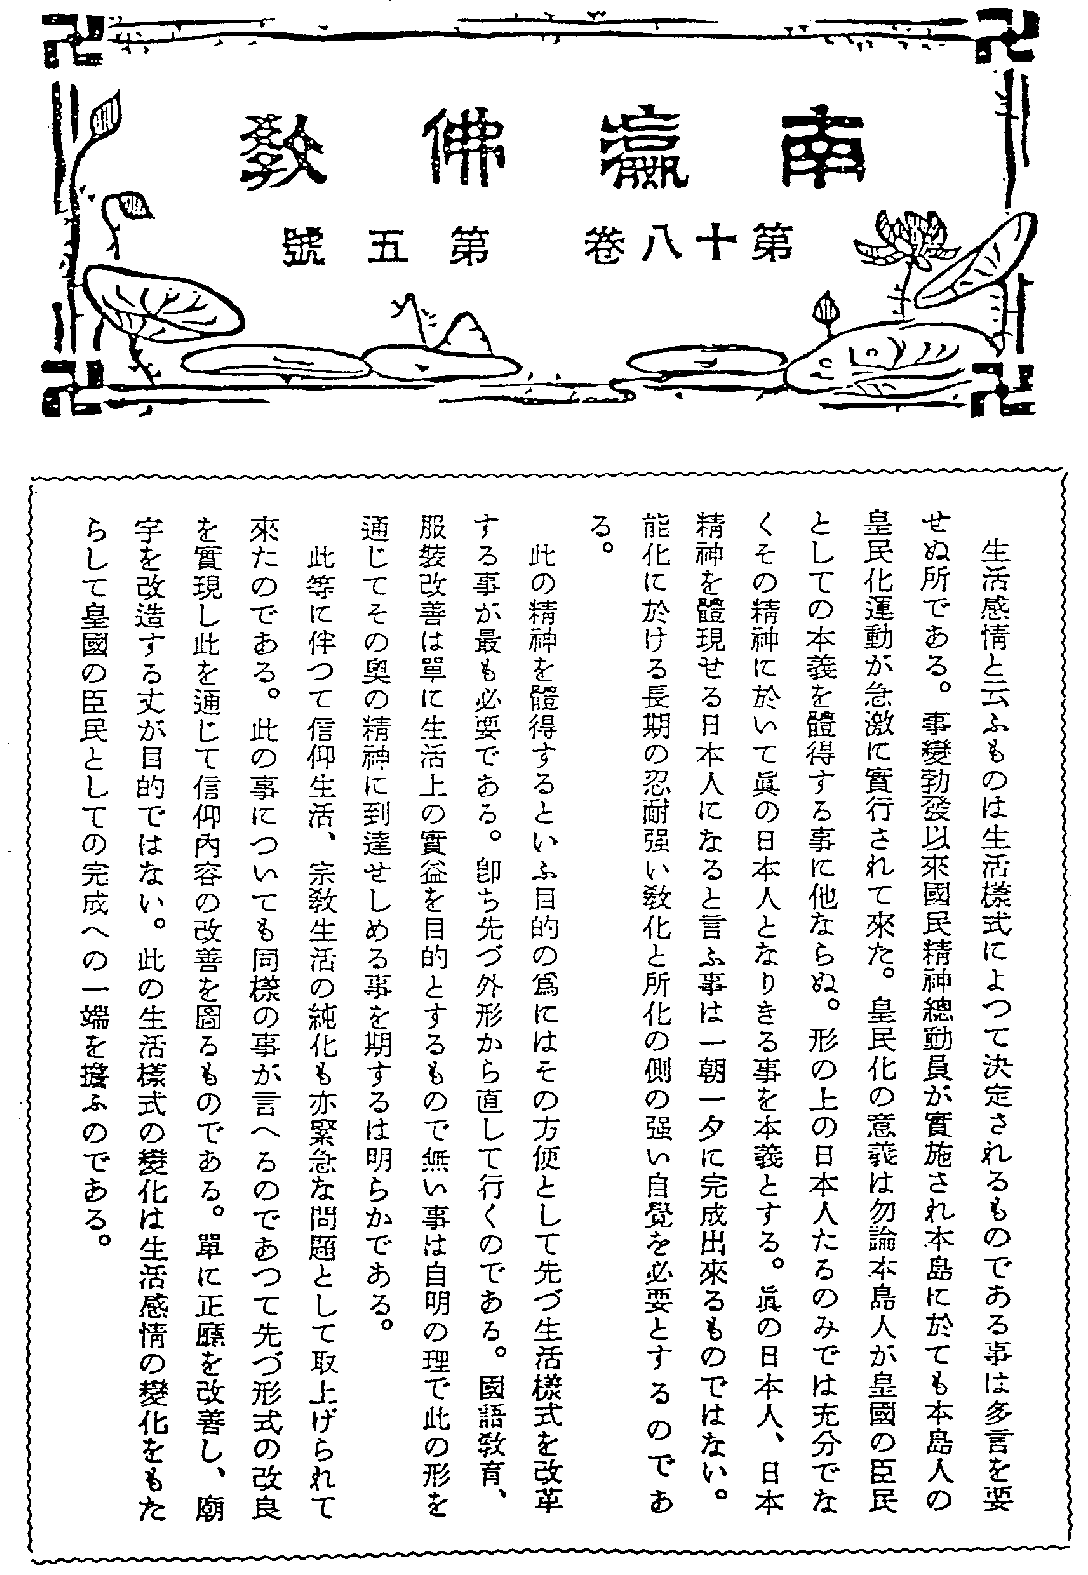 南瀛佛教
第十八卷　第五號
　生活感情と云ふものは生活樣式によつて決定されるものである事は多言を要
せぬ所である。事變勃發以來國民精神總動員が實施され本島に於ても本島人の
皇民化運動が急激に實行されて來た。皇民化の意義は勿論本島人が皇國の臣民
としての本義を體得する事に他ならぬ。形の上の日本人たるのみでは充分でな
くその精神に於いて眞の日本人となりきる事を本義とする。眞の日本人、日本
精神を體現せる日本人になると言ふ事は一朝一夕に完成出來るものではない。
能化に於ける長期の忍耐强い敎化と所化の側の强い自覺を必要とするのであ
る。
　此の精神を體得するといふ目的の爲にはその方便として先づ生活樣式を改革
する事が最も必要である。卽ち先づ外形から直して行くのである。國語敎育、
服裝改善は單に生活上の實益を目的とするもので無い事は自明の理で此の形を
通じてその奧の精神に到達せしめる事を期するは明らかである。
　此等に伴つて信仰生活、宗敎生活の純化も亦緊急な問題として取上げられて
來たのである。此の事についても同樣の事が言へるのであつて先づ形式の改良
を實現し此を通じて信仰內容の改善を圖るものである。單に正廳を改善し、廟
宇を改造する丈が目的ではない。此の生活樣式の變化は生活感情の變化をもた
らして皇國の臣民としての完成への一端を擔ふのである。